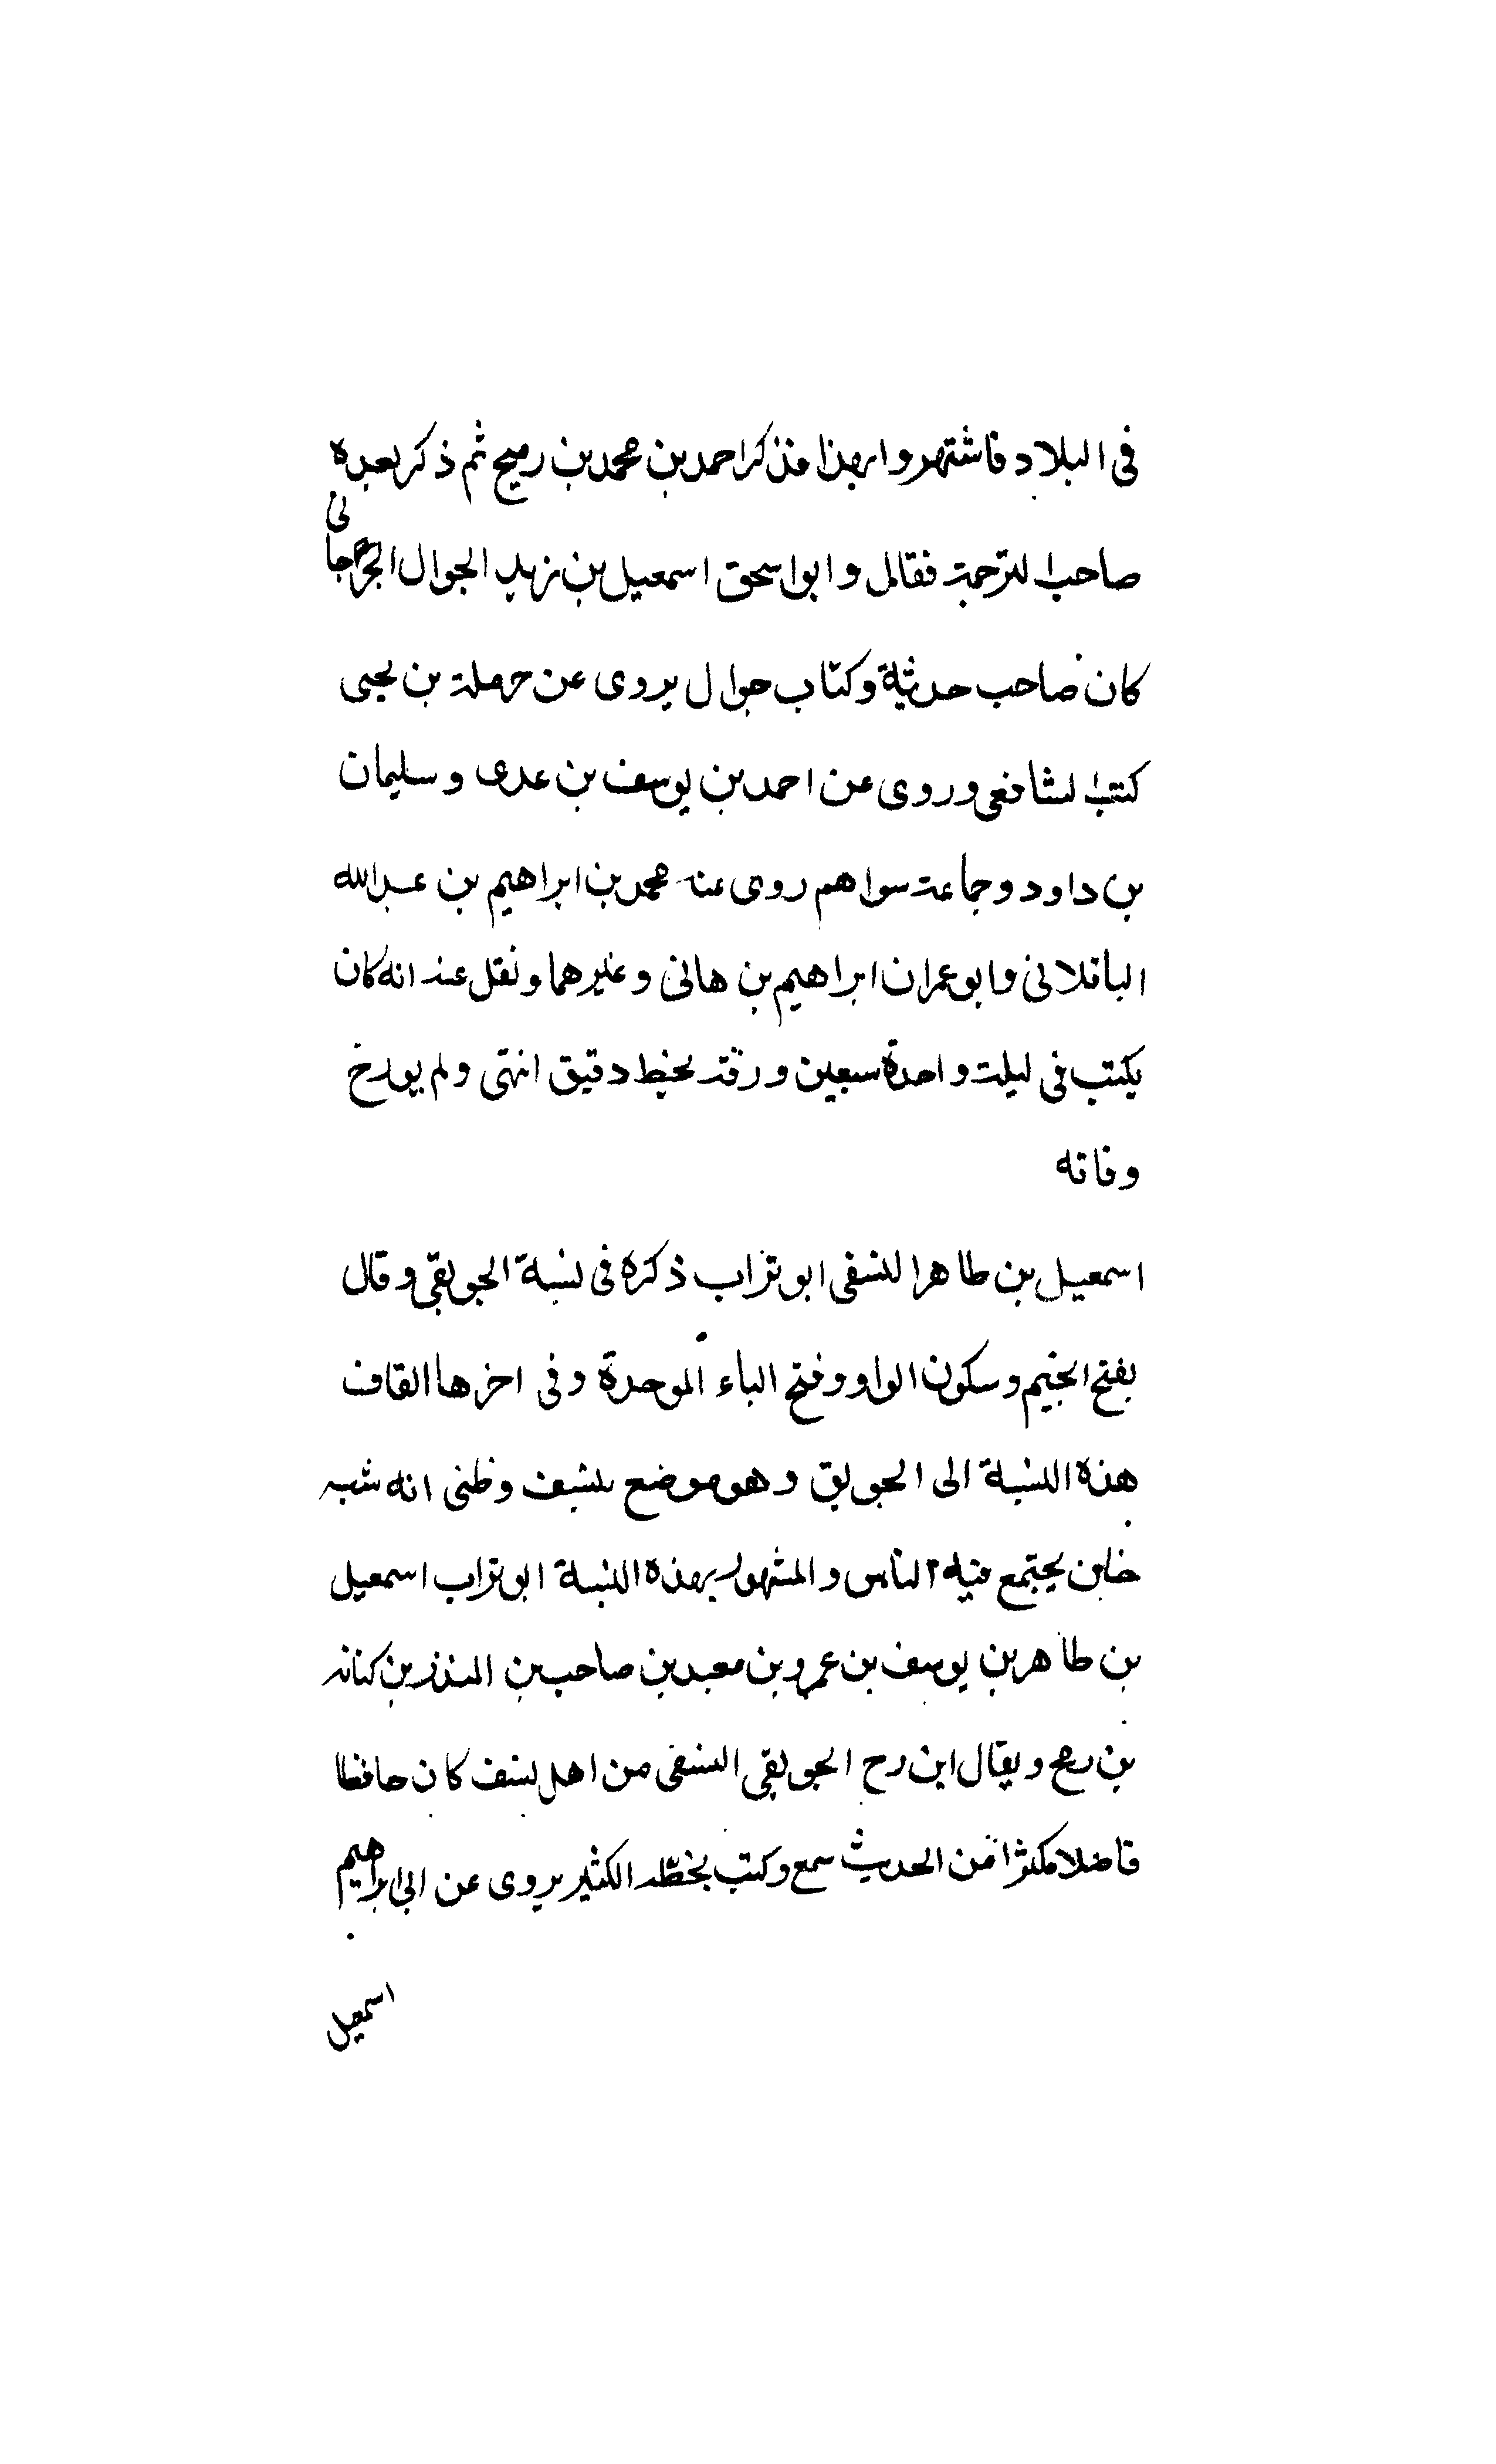 فى البلاد فاشتهروا بهذا فذكر احمد بن محمد بن رميح ثم ذكر بعده
صاحب الترجمة فقال وابو اسحق اسمعيل بن زيد الجوال الجرجانى
كان صاحب حديثة وكتاب جوال يروى عن حرملة بن يحيى
كتب الشافعى وروى عن احمد بن يوسف بن عدى وسليمان
بن داود وجماعة سواهم روى عنه محمد بن ابراهيم بن عبد الله
الباقلانى وابو عمران ابراهيم بن هانى وغيرهما ونقل عنه انه كان
يكتب فى ليلة واحدة سبعين ورقة بخط دقيق انتهى ولم يورخ
وفاته
اسمعيل بن طاهر النسفى ابو تراب ذكره فى نسبة الجوبقى وقال
بفتح الجيم وسكون الواو وفتح الباء الموحدة وفى اخرها القاف
هذه النسبة الى الجوبق وهو موضع بنسف وظنى انه شبه
خان يجتمع فيه الناس والمشهور بهذه النسبة ابو تراب اسمعيل
بن طاهر بن يوسف بن عمرو بن معبد بن صاحب بن المنذر بن كنانه
بن رمح ويقال ابن رح الجوبقى النسفى من اهل نسف كان حافظا
فاضلا مكثرا من الحديث سمع وكتب بخطه الكثير يروى عن ابى ابراهيم
اسمعيل